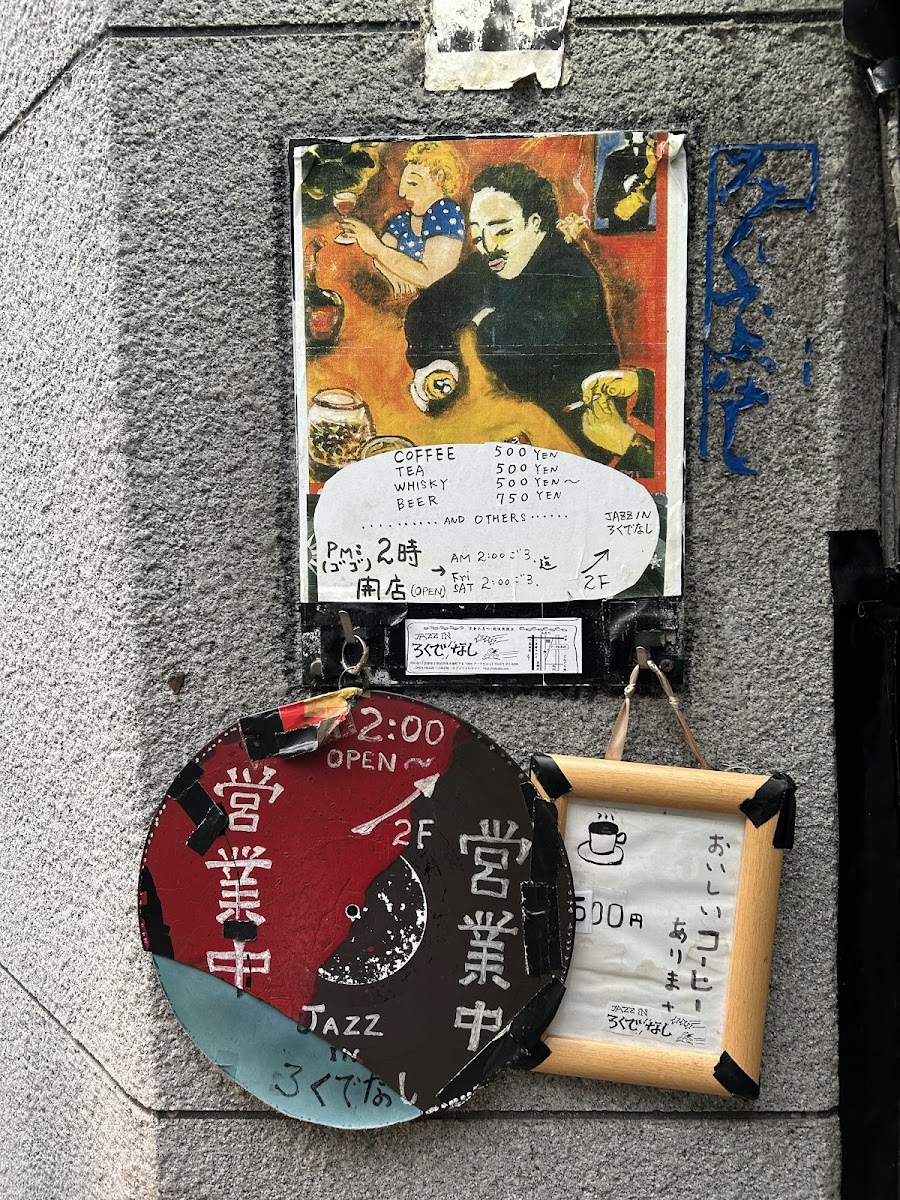 ろくでなし
COFFEE 500 YEN
TEA 500 YEN
WHISKY 500 YEN～
BEER 750 YEN
.......... AND OTHERS ......
JAZZ IN
ろくでなし
2F
PM:
(ゴゴ)
2時
開店(OPEN)
→
AM 2:00ごろ迄
Fri
SAT 2:00ごろ
JAZZ IN
ろくでなし
2:00
OPEN～
2F
営業中
営業中
JAZZ
IN
ろくでなし
おいしいコーヒー
あります
500円
JAZZ IN
ろくでなし